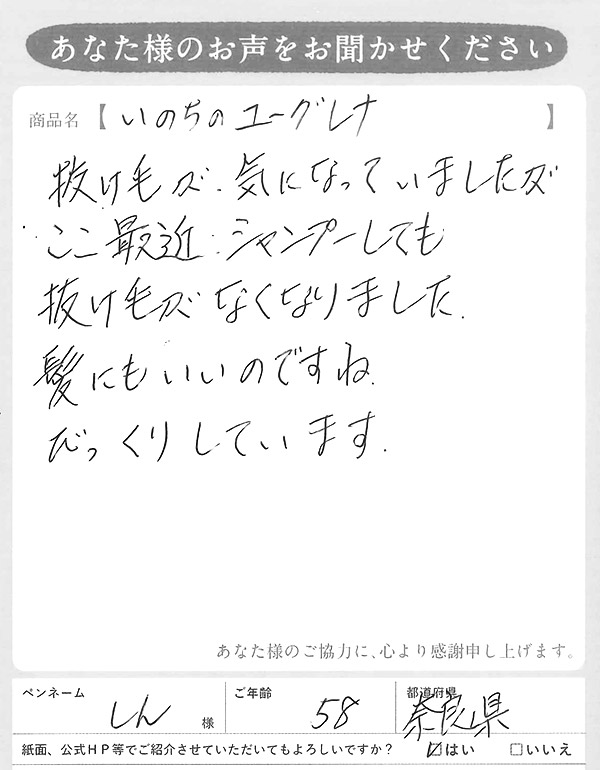 あなた様のお声をお聞かせください
商品名【いのちのユーグレナ】
抜け毛が、気になっていましたが
ここ最近、シャンプーしても
抜け毛がなくなりました。
髪にもいいのですね。
びっくりしています。
あなた様のご協力に、心より感謝申し上げます。
ペンネーム しん 様 ご年齢 58 都道府県 奈良県
紙面、公式HP等でご紹介させていただいてもよろしいですか? ☑はい □いいえ